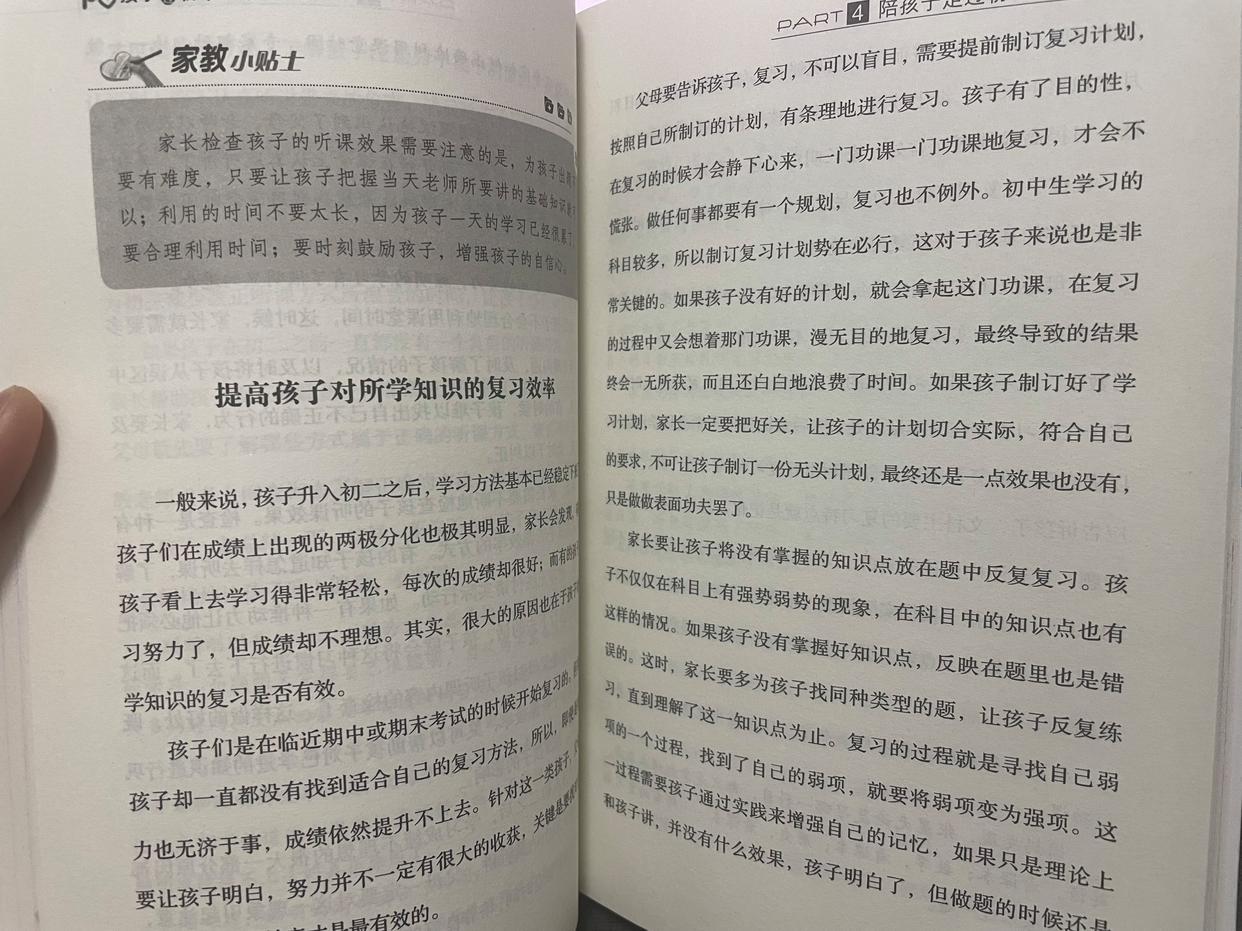 家教小贴士
家长检查孩子的听课效果需要注意的是，为孩子出
要有难度，只要让孩子把握当天老师所要讲的基础知识
以；利用的时间不要太长，因为孩子一天的学习已经很累了
要合理利用时间；要时刻鼓励孩子，增强孩子的自信心。
提高孩子对所学知识的复习效率
一般来说，孩子升入初二之后，学习方法基本已经稳定下
孩子们在成绩上出现的两极分化也极其明显，家长会发现，
孩子看上去学习得非常轻松，每次的成绩却很好；而有的孩
习努力了，但成绩却不理想。其实，很大的原因也在于孩子
学知识的复习是否有效。
孩子们是在临近期中或期末考试的时候开始复习的，
孩子却一直都没有找到适合自己的复习方法，所以，即使
力也无济于事，成绩依然提升不上去。针对这一类孩子，
要让孩子明白，努力并不一定有很大的收获，关键是要
才是最有效的。
PART 4 陪孩子走过初
父母要告诉孩子，复习，不可以盲目，需要提前制订复习计划，
按照自己所制订的计划，有条理地进行复习。孩子有了目的性，
在复习的时候才会静下心来，一门功课一门功课地复习，才会不
慌张。做任何事都要有一个规划，复习也不例外。初中生学习的
科目较多，所以制订复习计划势在必行，这对于孩子来说也是非
常关键的。如果孩子没有好的计划，就会拿起这门功课，在复习
的过程中又会想着那门功课，漫无目的地复习，最终导致的结果
终会一无所获，而且还白白地浪费了时间。如果孩子制订好了学
习计划，家长一定要把好关，让孩子的计划切合实际，符合自己
的要求，不可让孩子制订一份无头计划，最终还是一点效果也没有，
只是做做表面功夫罢了。
家长要让孩子将没有掌握的知识点放在题中反复复习。孩
子不仅仅在科目上有强势弱势的现象，在科目中的知识点也有
这样的情况。如果孩子没有掌握好知识点，反映在题里也是错
误的。这时，家长要多为孩子找同种类型的题，让孩子反复练
习，直到理解了这一知识点为止。复习的过程就是寻找自己弱
项的一个过程，找到了自己的弱项，就要将弱项变为强项。这
一过程需要孩子通过实践来增强自己的记忆，如果只是理论上
和孩子讲，并没有什么效果，孩子明白了，但做题的时候还是